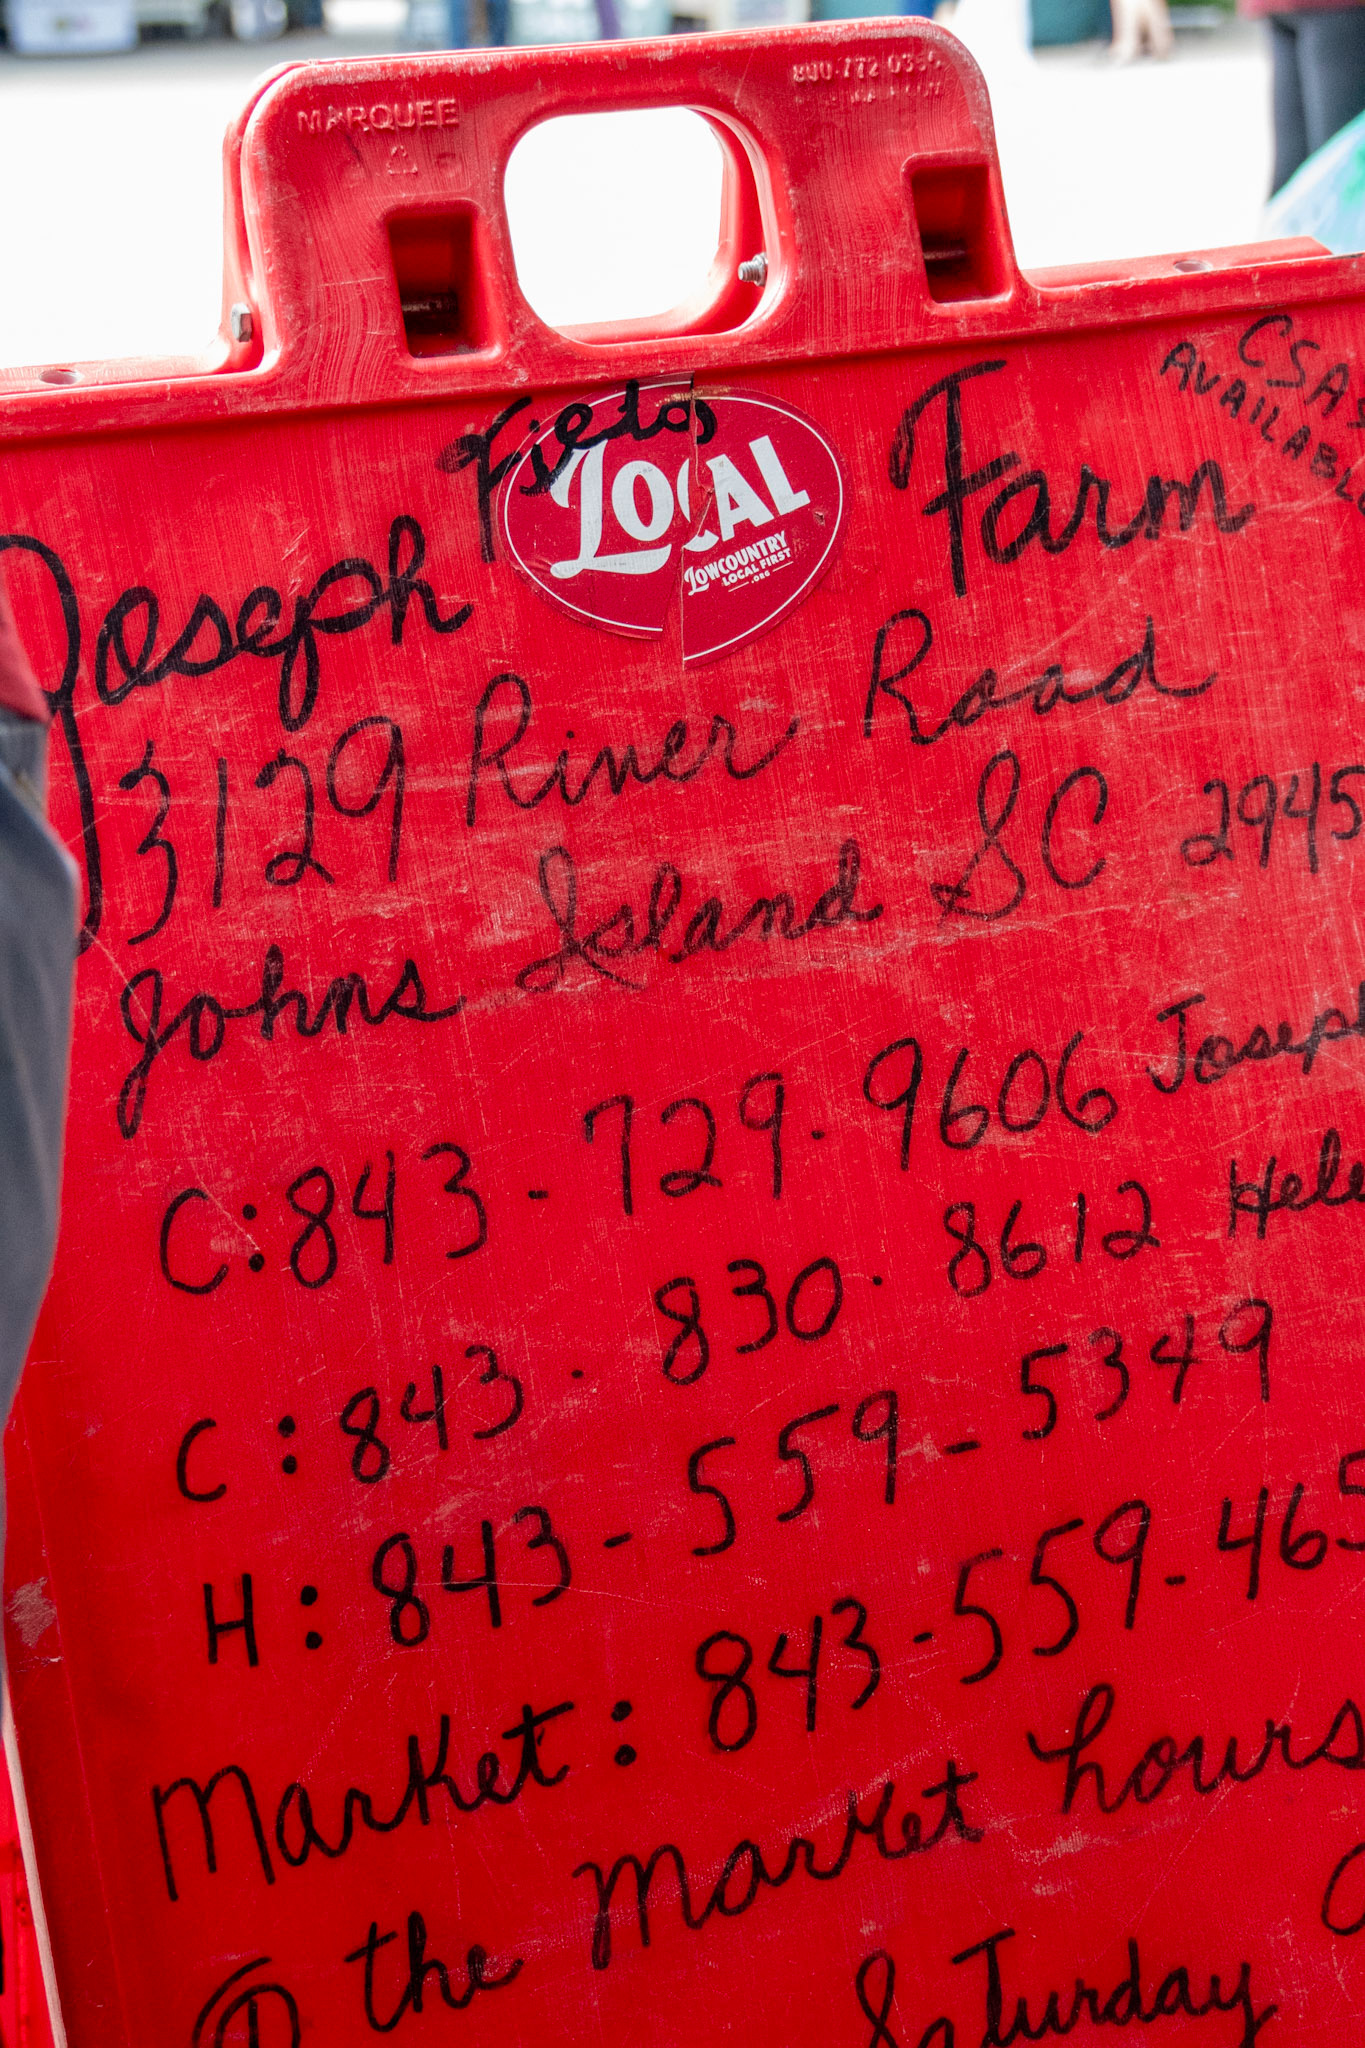 MARQUEE
CSAS
AVAILABLE
Joseph Fields Farm
LOCAL
LOWCOUNTRY
LOCAL FIRST
.ORG
3129 River Road
Johns Island SC 2945
C: 843-729-9606 Joseph
C: 843-830-8612 Hele
H: 843-559-5349
Market: 843-559-465
@ the Market hours
Saturday